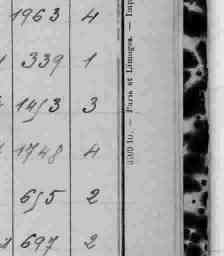 1963 4
339 1
1453 3
1748 4
655 2
697 2
Paris et Limoges. — Imp